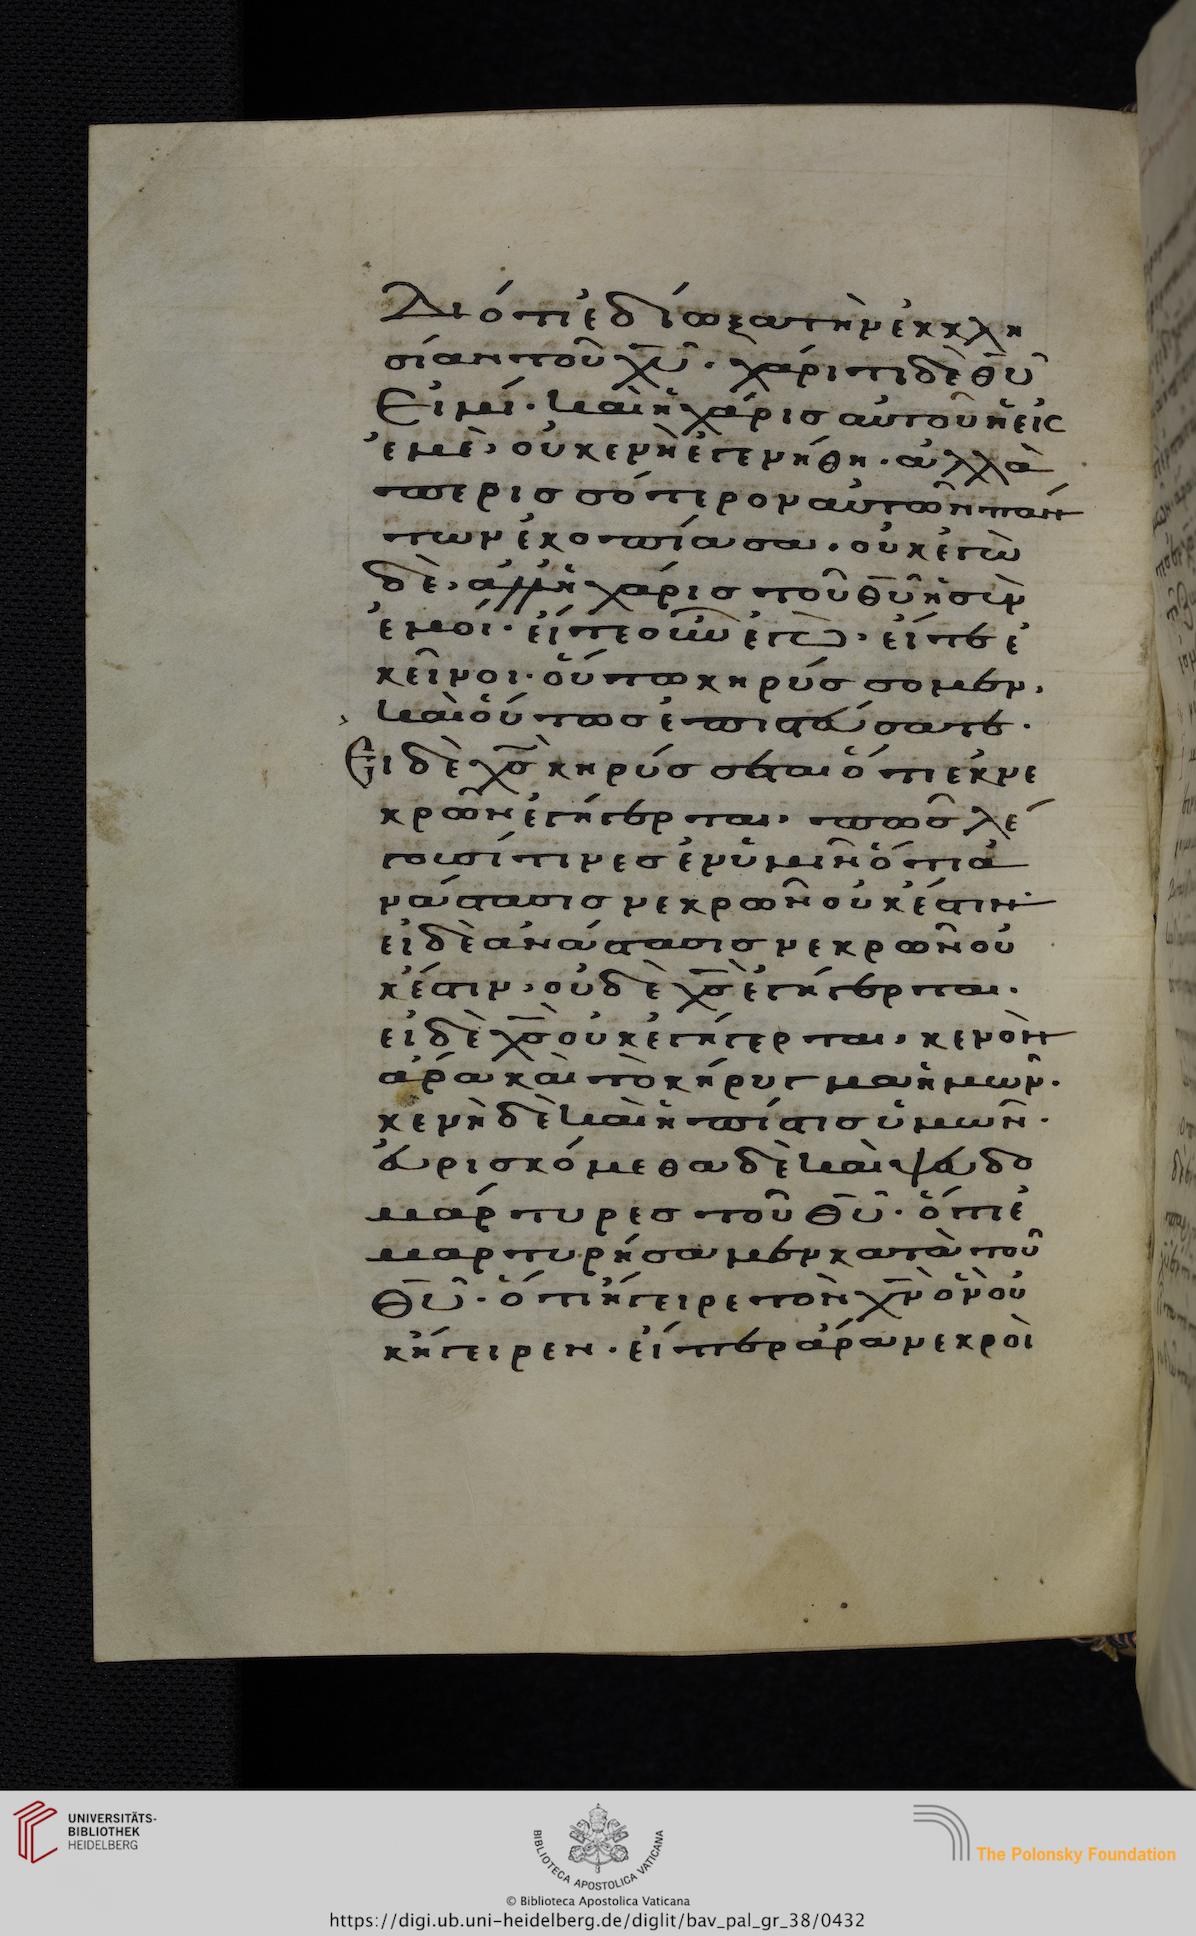 Διότι ἐδίωξα τὴν ἐκκλη
σίαν τοῦ χ̅υ̅· χάριτι δὲ θ̅υ̅
Εἰμί· καὶ ἡ χάρις αὐτοῦ ἡ εἰς
ἐμὲ, οὐ κενὴ ἐγενήθη· ἀλλὰ
περισσότερον αὐτῶν πάν
των ἐκοπίασα· οὐκ ἐγὼ
δὲ, ἀλλ' ἡ χάρις τοῦ θ̅υ̅ ἡ σὺν
ἐμοί· εἴτε οὖν ἐγὼ· εἴτε ἐ
κεῖνοι· οὕτω κηρύσσομεν,
καὶ οὕτως ἐπιστεύσατε·
Εἰ δὲ χ̅ς̅ κηρύσσεται ὅτι ἐκ νε
κρῶν ἐγήγερται, πῶς λέ
γουσί τινες ἐν ὑμῖν ὅτι ἀ
νάστασις νεκρῶν οὐκ ἔστιν·
εἰ δὲ ἀνάστασις νεκρῶν οὐ
κ ἔστιν, οὐδὲ χ̅ς̅ ἐγήγερται·
εἰ δὲ χ̅ς̅ οὐκ ἐγήγερται, κενὸν
ἄρα καὶ τὸ κήρυγμα ἡμῶν·
κενὴ δὲ καὶ ἡ πίστις ὑμῶν·
εὑρισκόμεθα δὲ καὶ ψευδο
μάρτυρες τοῦ θ̅υ̅· ὅτι ἐ
μαρτυρήσαμεν κατὰ τοῦ
θ̅υ̅· ὅτι ἤγειρε τὸν χ̅ν̅ ὃν οὐ
κ ἤγειρεν· εἴπερ ἄρα νεκροὶ
UNIVERSITÄTS-
BIBLIOTHEK
HEIDELBERG
BIBLIOTECA APOSTOLICA VATICANA
© Biblioteca Apostolica Vaticana
The Polonsky Foundation
https://digi.ub.uni-heidelberg.de/diglit/bav_pal_gr_38/0432